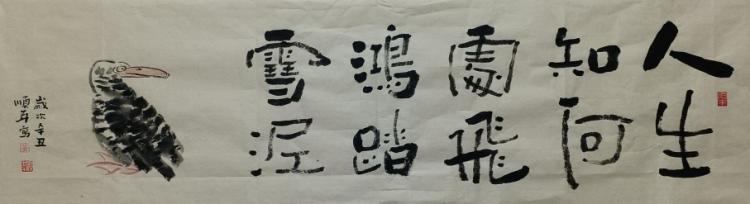 人生
知何
處飛
鴻踏
雪泥
歲次辛丑
順 寫